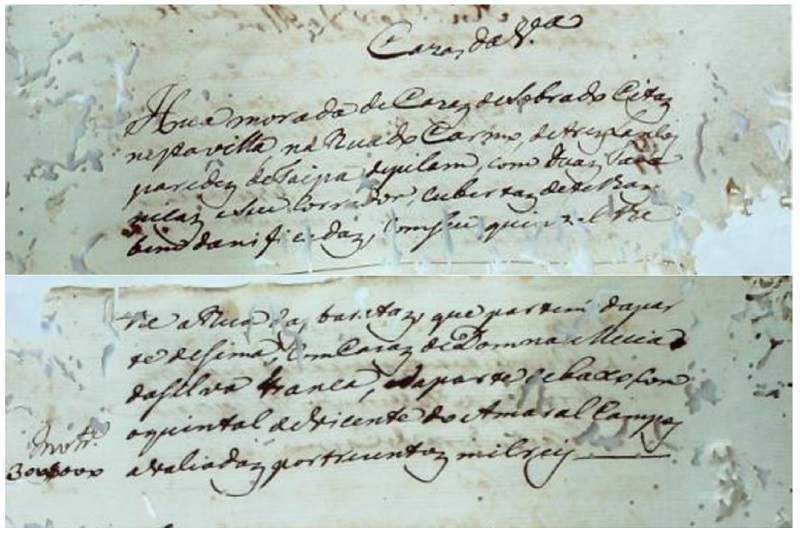 Cazas da V.ª
Hua morada de Cazas de Sobrado Citas
nesta villa, na Rua do Carmo, de tres Lanços
paredes de taipa de pilam, com duas
e seu Corredor, cubertas de telha
danificadas, com seu quintal
a Rua das, baritas, que partem da par
te de sima, com Cazas de Donna Mecia
da Silva Franca, e da parte debaxo, Com
o quintal de Vicente do Amaral Campos
avaliadas por trecentos mil reis
300$000